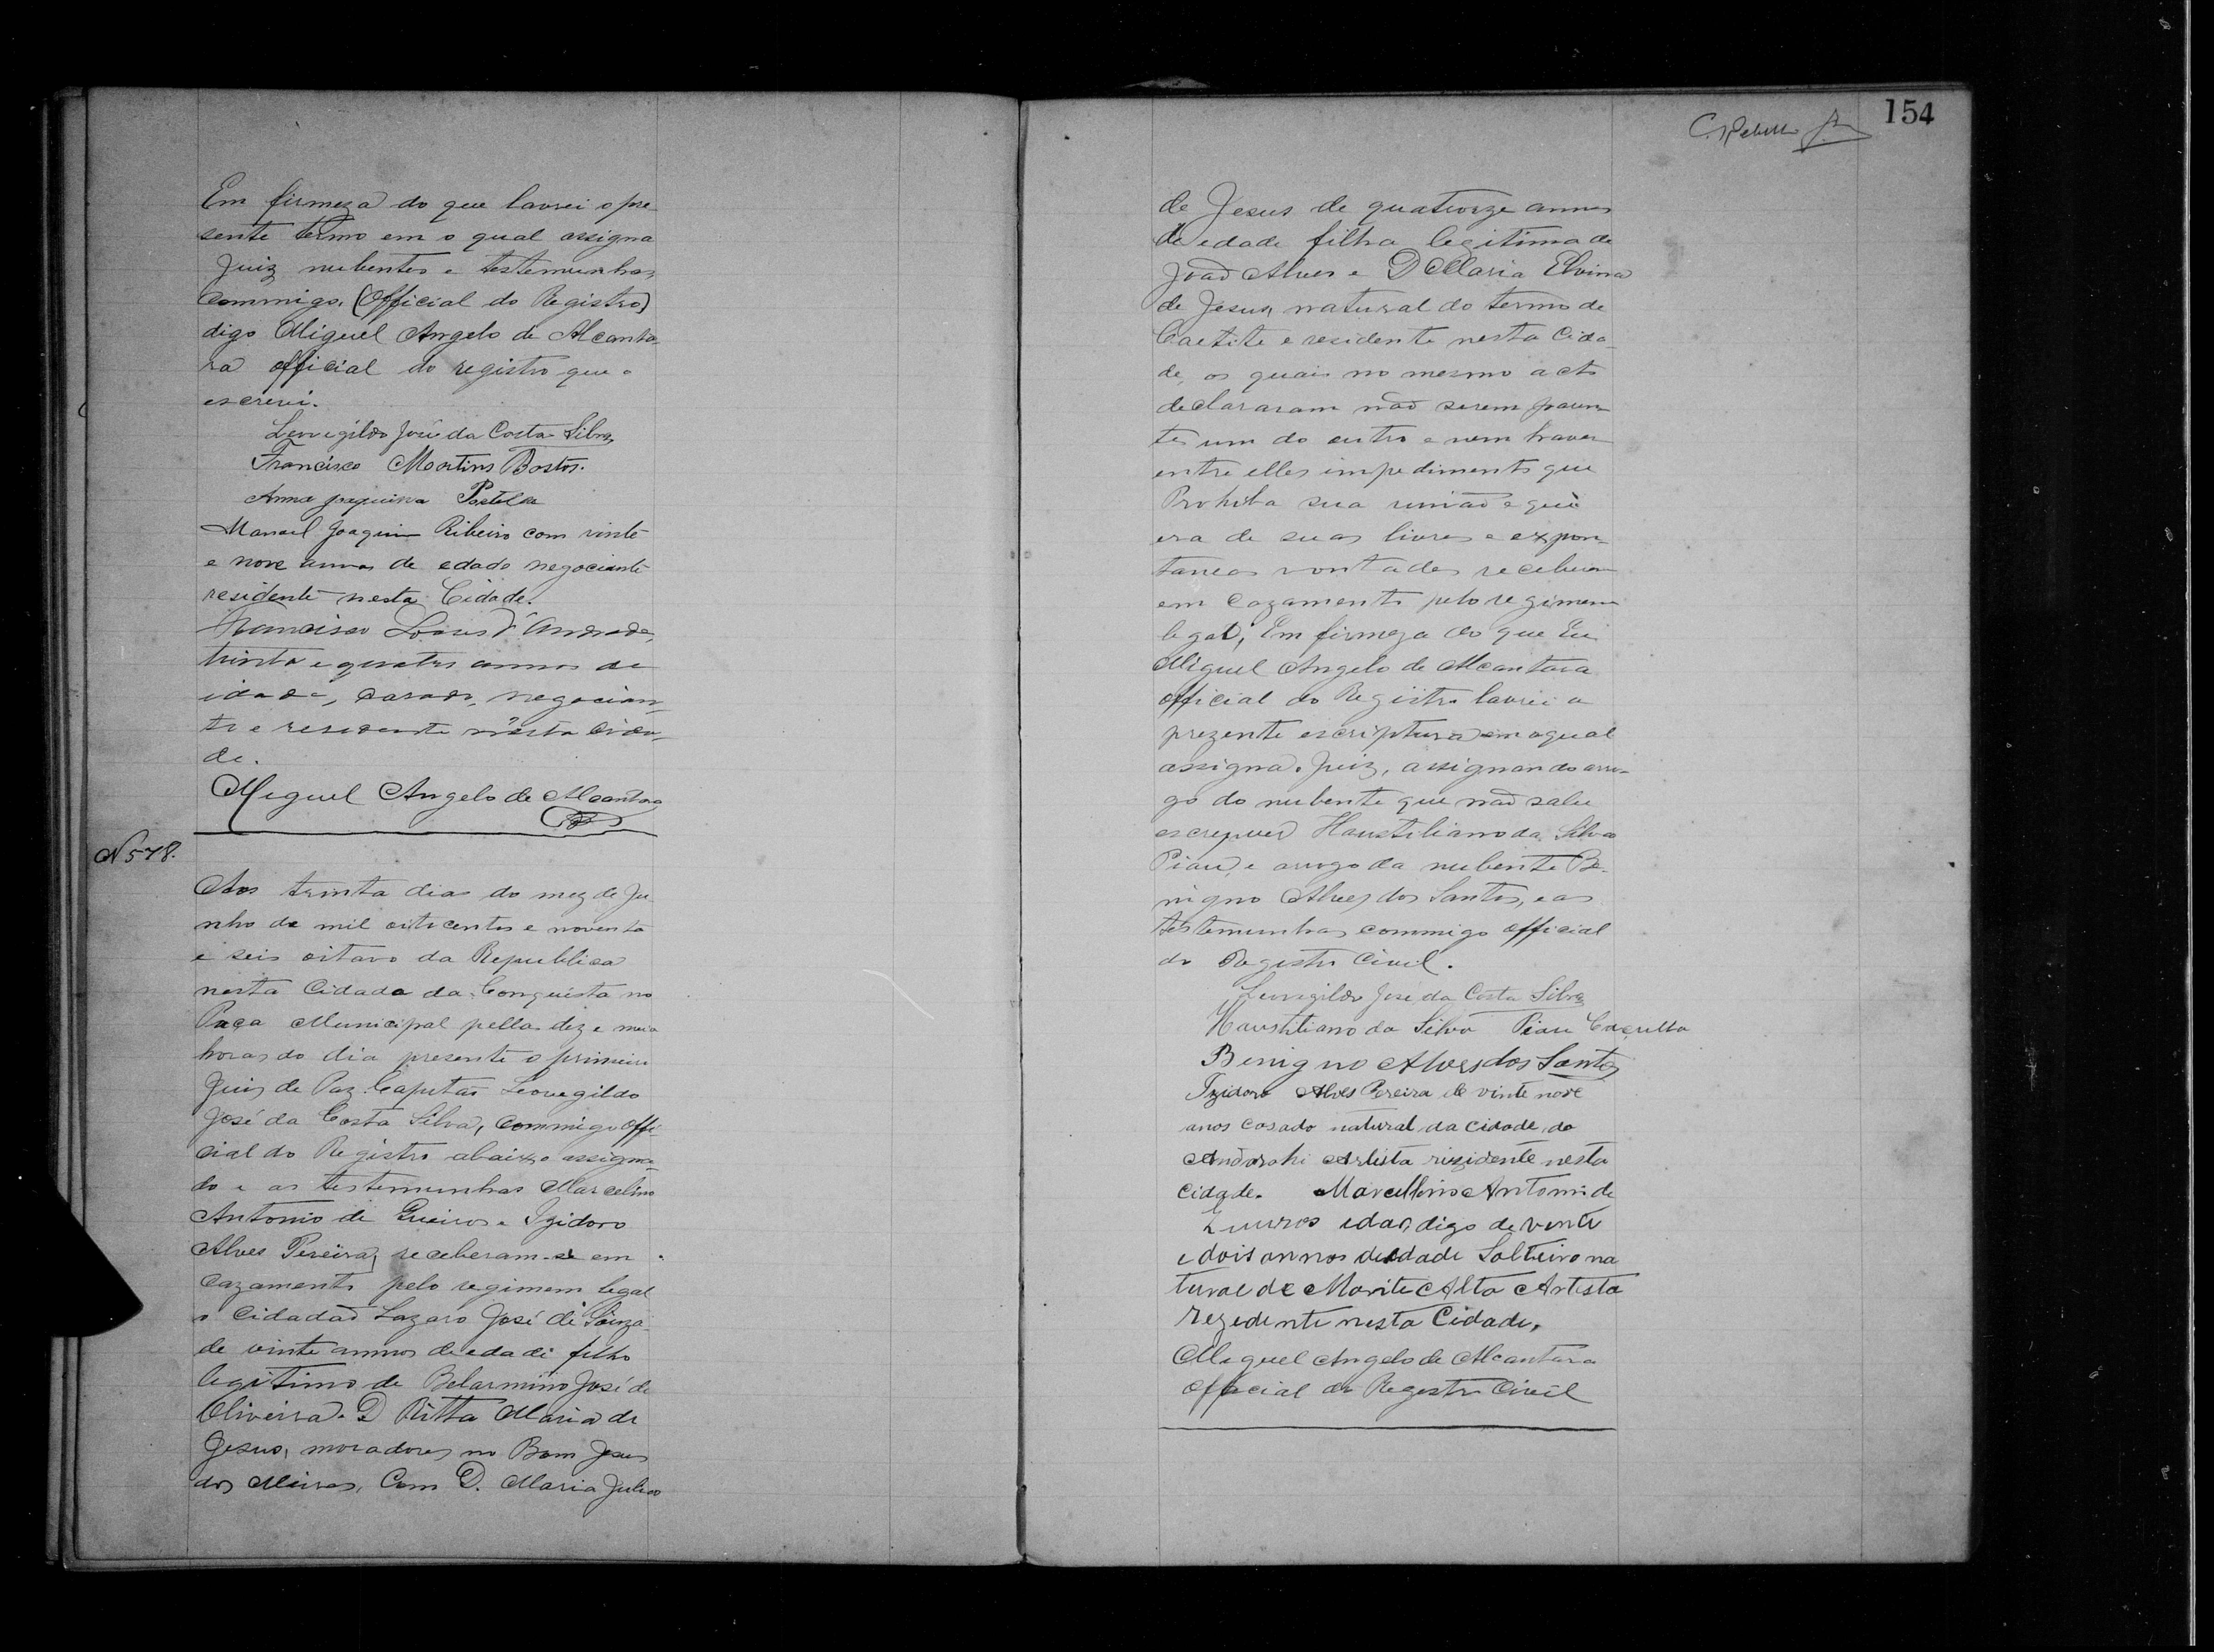 Em firmeza do que lavrei o pre
sente termo em o qual assigna
Juiz nubentes e testemunhas
commigo, (Official do Registro)
digo Miguel Angelo de Alcanta-
ra official do registro que o
escrevi.
Leovegildo José da Costa Silva
Francisco Martins Bastos.
Anna Joaquina
Manoel Joaquim Ribeiro com vinte
e nove annos de edade negociante
residente nesta Cidade.
Francisco Soares d'Andrade,
trinta e quatro annos de
idade, casado, negocian-
te e residente nesta Cida-
de.
Miguel Angelo de Alcantara
N 578.
Aos trinta dias do mez de Ju
nho de mil oitocentos e noventa
e seis oitavo da Republica
nesta Cidade da Conquista no
Paça Municipal pellas dez e meia
horas do dia presente o primeiro
Juis de Paz Capitão Leovegildo
José da Costa Silva, commigo offi-
cial do Registro abaixo assigna-
do e as testemunhas Marcelino
Antonio de Queiros e Izidoro
Alves Pereira, receberam-se em
Cazamento pelo regimem legal
o Cidadão Lazaro José di Souza
de vinte annos de edade filho
legitimo de Belarmino José de
Oliveira e D Ritta Maria de
Jesus, moradores no Bom Jesus
dos Meiras, Com D. Maria Julia
154
de Jesus de quatorze annos
de edade filha legitima de
João Alves e D Maria Elvina
de Jesus, natural do termo de
Caetite e residente nesta Cida-
de, os quais no mesmo acto
declararam não serem paren-
tes um do outro e nem haver
entre elles impedimento que
Prohiba sua união e que
era de suas livres e expon-
taneas vontades receberem
em Cazamento pelo regimem
legal; Em firmeza do que Eu
Miguel Angelo de Alcantara
official do Registro lavrei a
prezente escriptura em a qual
assigna o Juiz, assignando arro-
go do nubente que não sabe
escrever Haustiliano da Silva
Piau, e arrogo da nubente Be-
nigno Alves dos Santos, e as
testemunhas commigo official
do Registro Civil.
Leovegildo José da Costa Silva
Haustiliano da Silva Piau
Benigno Alves dos Santos
Izidoro Alves Pereira de vinte nove
anos casado natural da cidade do
Andarahi Artista rizidente nesta
cidade. Marcellino Antonio de
idad, digo de vinte
e dois annos de edade Solteiro na
tural de Monte Alto Artista
rezidente nesta Cidade.
Miguel Angelo de Alcantara
Official do Registro Civil